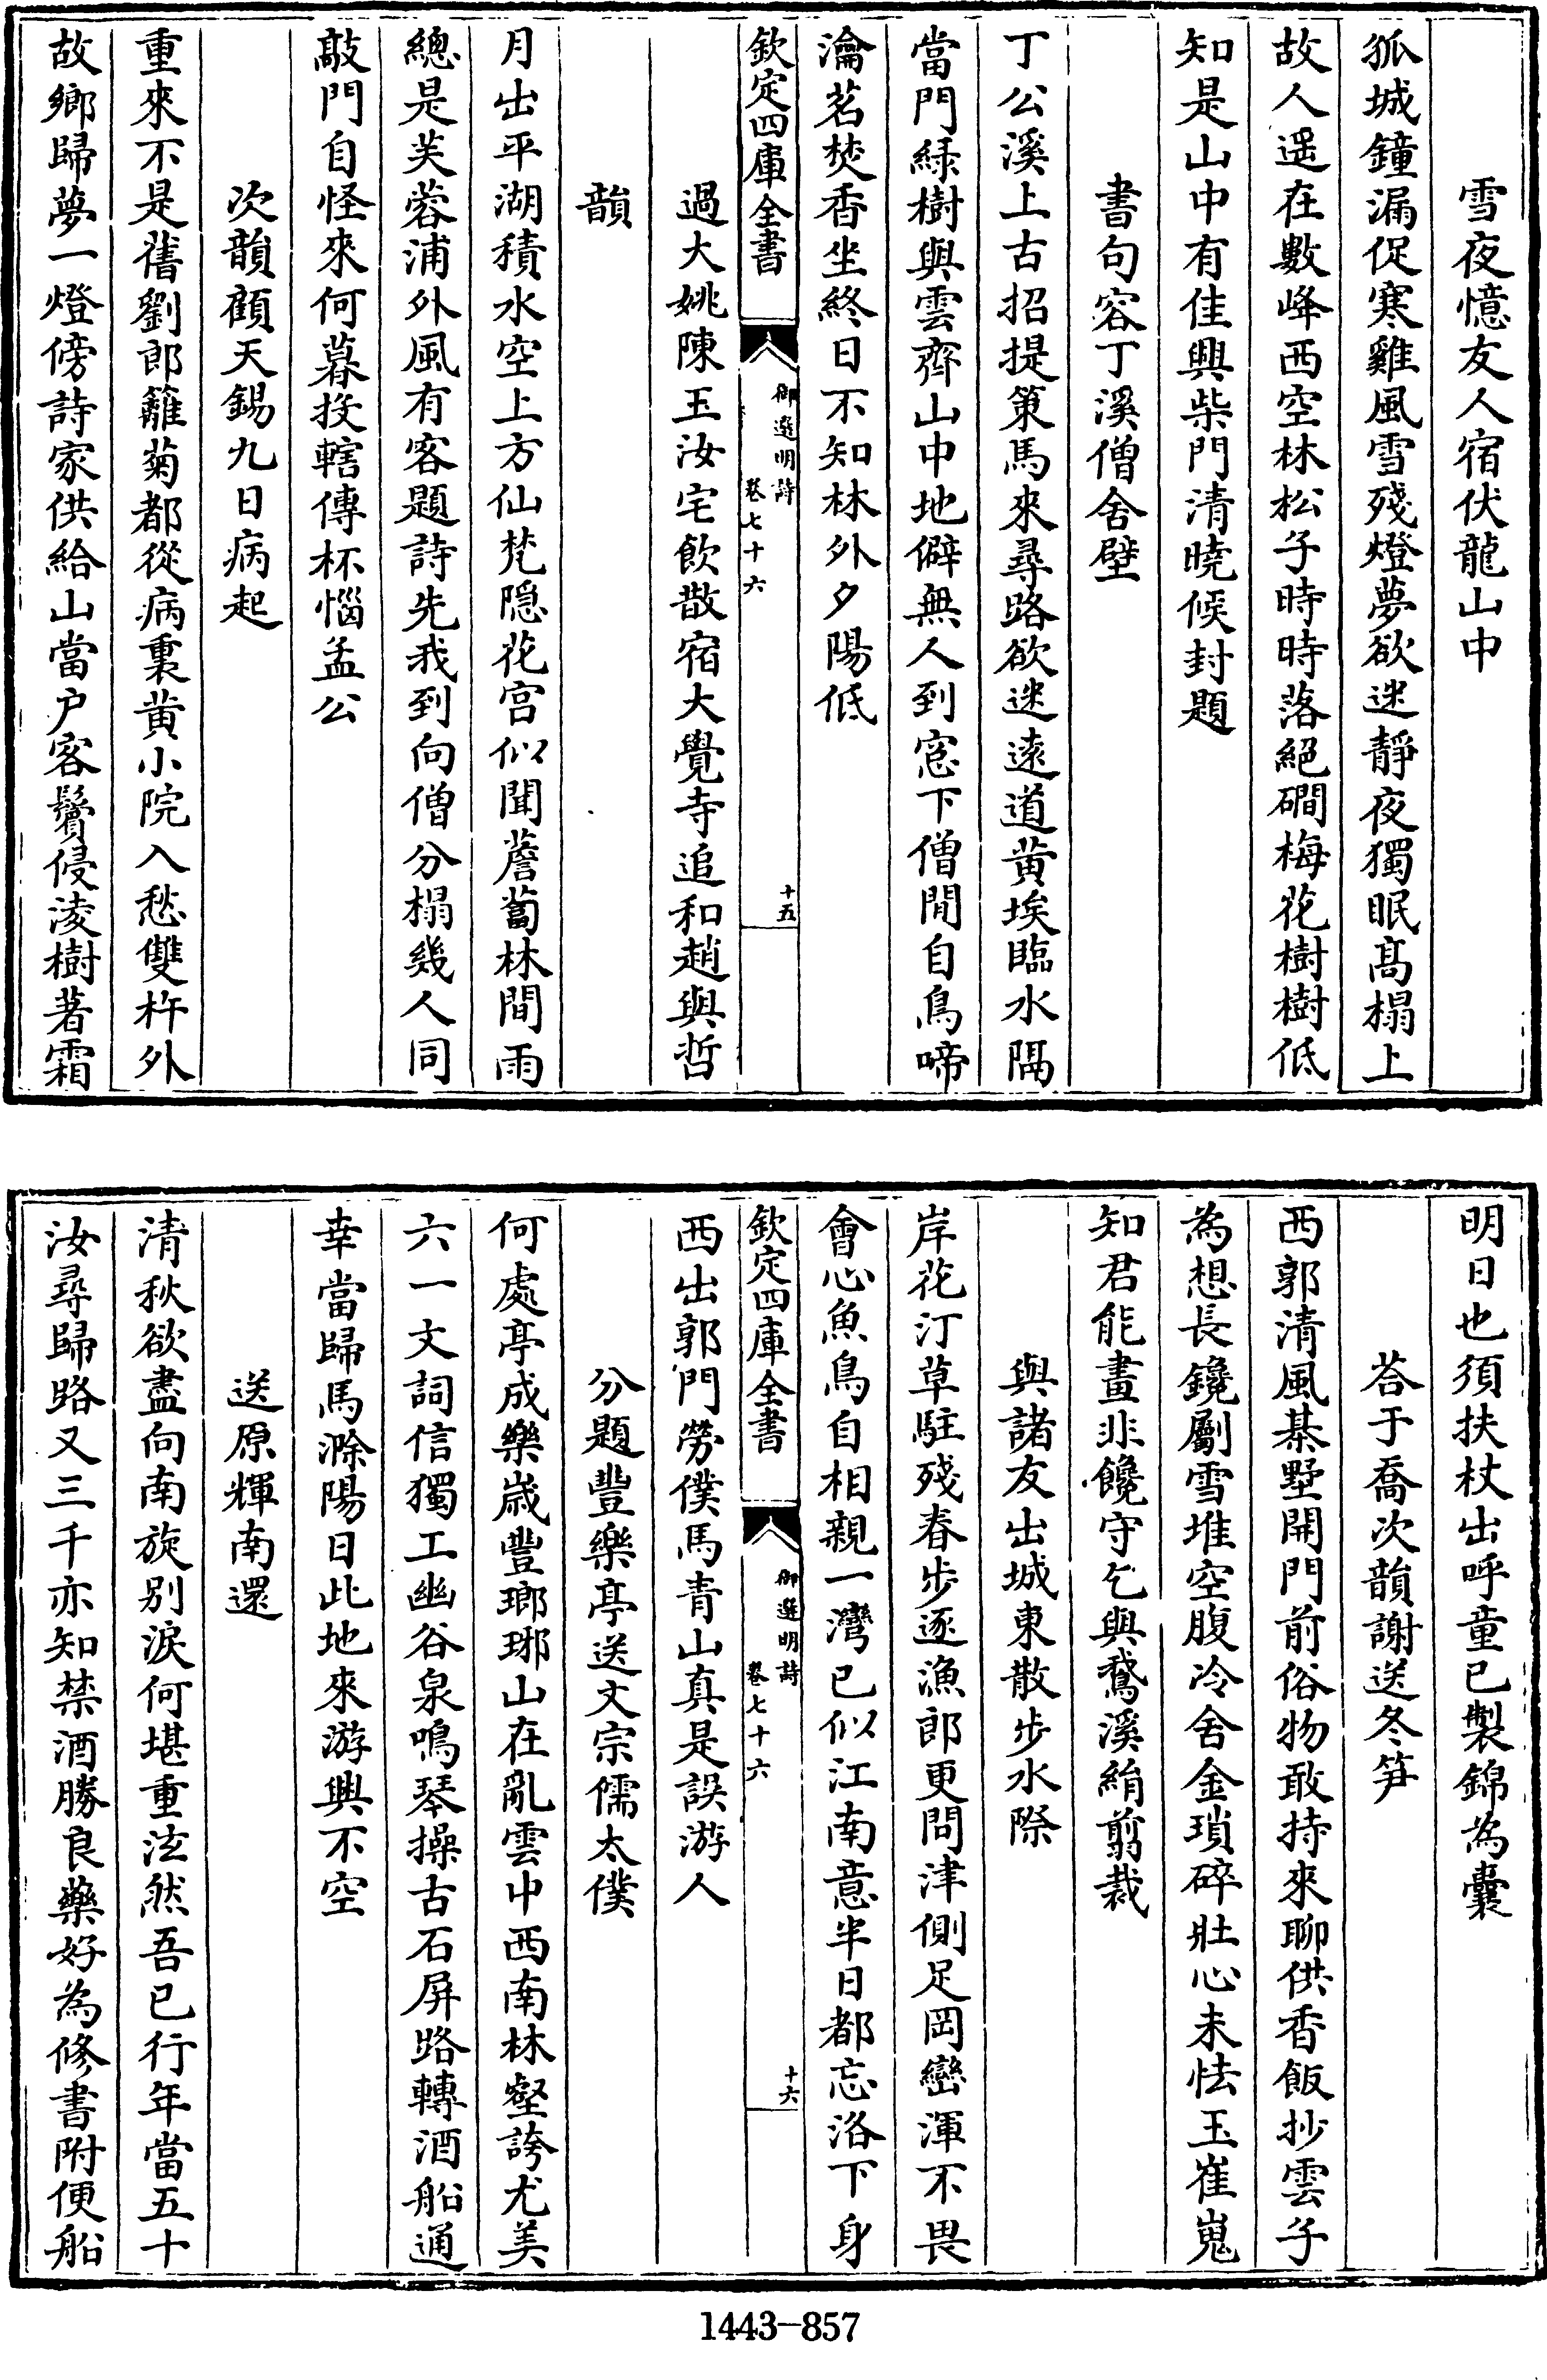 雪夜憶友人宿伏龍山中
孤城鐘漏促寒雞風雪殘燈夢欲迷靜夜獨眠髙榻上
故人遥在數峰西空林松子時時落絕磵梅花樹樹低
知是山中有佳興柴門清曉候封題
書句容丁溪僧舍壁
丁公溪上古招提策馬來尋路欲迷遠道黄埃臨水隔
當門緑樹與雲齊山中地僻無人到窓下僧閒自鳥啼
瀹茗焚香坐終日不知林外夕陽低
欽定四庫全書
御選明詩
卷七十六
十五
過大姚陳玉汝宅飲散宿大覺寺追和趙與哲
韻
月出平湖積水空上方仙梵隠花宫似聞薝蔔林間雨
總是芙蓉浦外風有客題詩先我到向僧分榻幾人同
敲門自怪來何暮投轄傳杯惱孟公
次韻顧天錫九日病起
重來不是舊劉郎籬菊都從病裏黄小院入愁雙杵外
故鄉歸夢一燈傍詩家供給山當户客鬢侵淩樹著霜
明日也須扶杖出呼童已製錦為囊
荅于喬次韻謝送冬笋
西郭清風棊墅開門前俗物敢持來聊供香飯抄雲子
為想長鑱劚雪堆空腹冷舍金瑣碎壯心未怯玉崔嵬
知君能畫非饞守乞與鵞溪絹翦裁
與諸友出城東散步水際
岸花汀草駐殘春步逐漁郎更問津側足岡巒渾不畏
會心魚鳥自相親一灣已似江南意半日都忘洛下身
欽定四庫全書
御選明詩
卷七十六
十六
西出郭門勞僕馬青山真是誤游人
分題豐樂亭送文宗儒太僕
何處亭成樂歲豐瑯琊山在亂雲中西南林壑誇尤美
六一文詞信獨工幽谷泉鳴琴操古石屏路轉酒船通
幸當歸馬滁陽日此地來游興不空
送原輝南還
清秋欲盡向南旋别淚何堪重泫然吾已行年當五十
汝尋歸路又三千亦知禁酒勝良藥好為修書附便船
1443-857